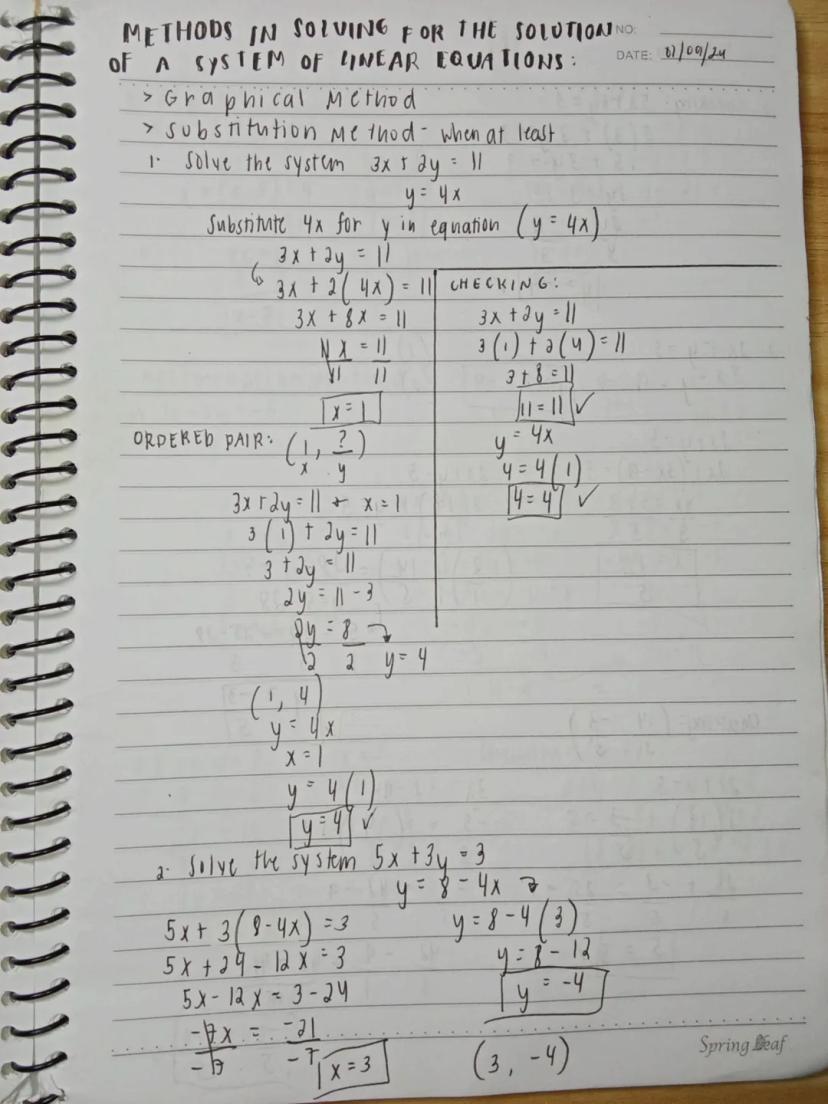 METHODS IN SOLVING FOR THE SOLUTION NO:
OF A SYSTEM OF LINEAR EQUATIONS: DATE: 02/09/24
> Graphical Method
> Substitution Method - when at least
1. Solve the system 3x + 2y = 11
y = 4x
Substitute 4x for y in equation (y = 4x)
3x + 2y = 11
3x + 2(4x) = 11
3x + 8x = 11
11x = 11
11 11
x = 1
CHECKING:
3x + 2y = 11
3(1) + 2(4) = 11
3 + 8 = 11
11 = 11 ✓
y = 4x
4 = 4(1)
4 = 4 ✓
ORDERED PAIR: (1, ?)
x y
3x + 2y = 11 → x = 1
3(1) + 2y = 11
3 + 2y = 11
2y = 11 - 3
2y = 8
2 2 y = 4
(1, 4)
y = 4x
x = 1
y = 4(1)
y = 4 ✓
2. Solve the system 5x + 3y = 3
y = 8 - 4x
5x + 3(8 - 4x) = 3
5x + 24 - 12x = 3
5x - 12x = 3 - 24
-7x = -21
-7 -7 x = 3
y = 8 - 4(3)
y = 8 - 12
y = -4
(3, -4)
Spring Leaf